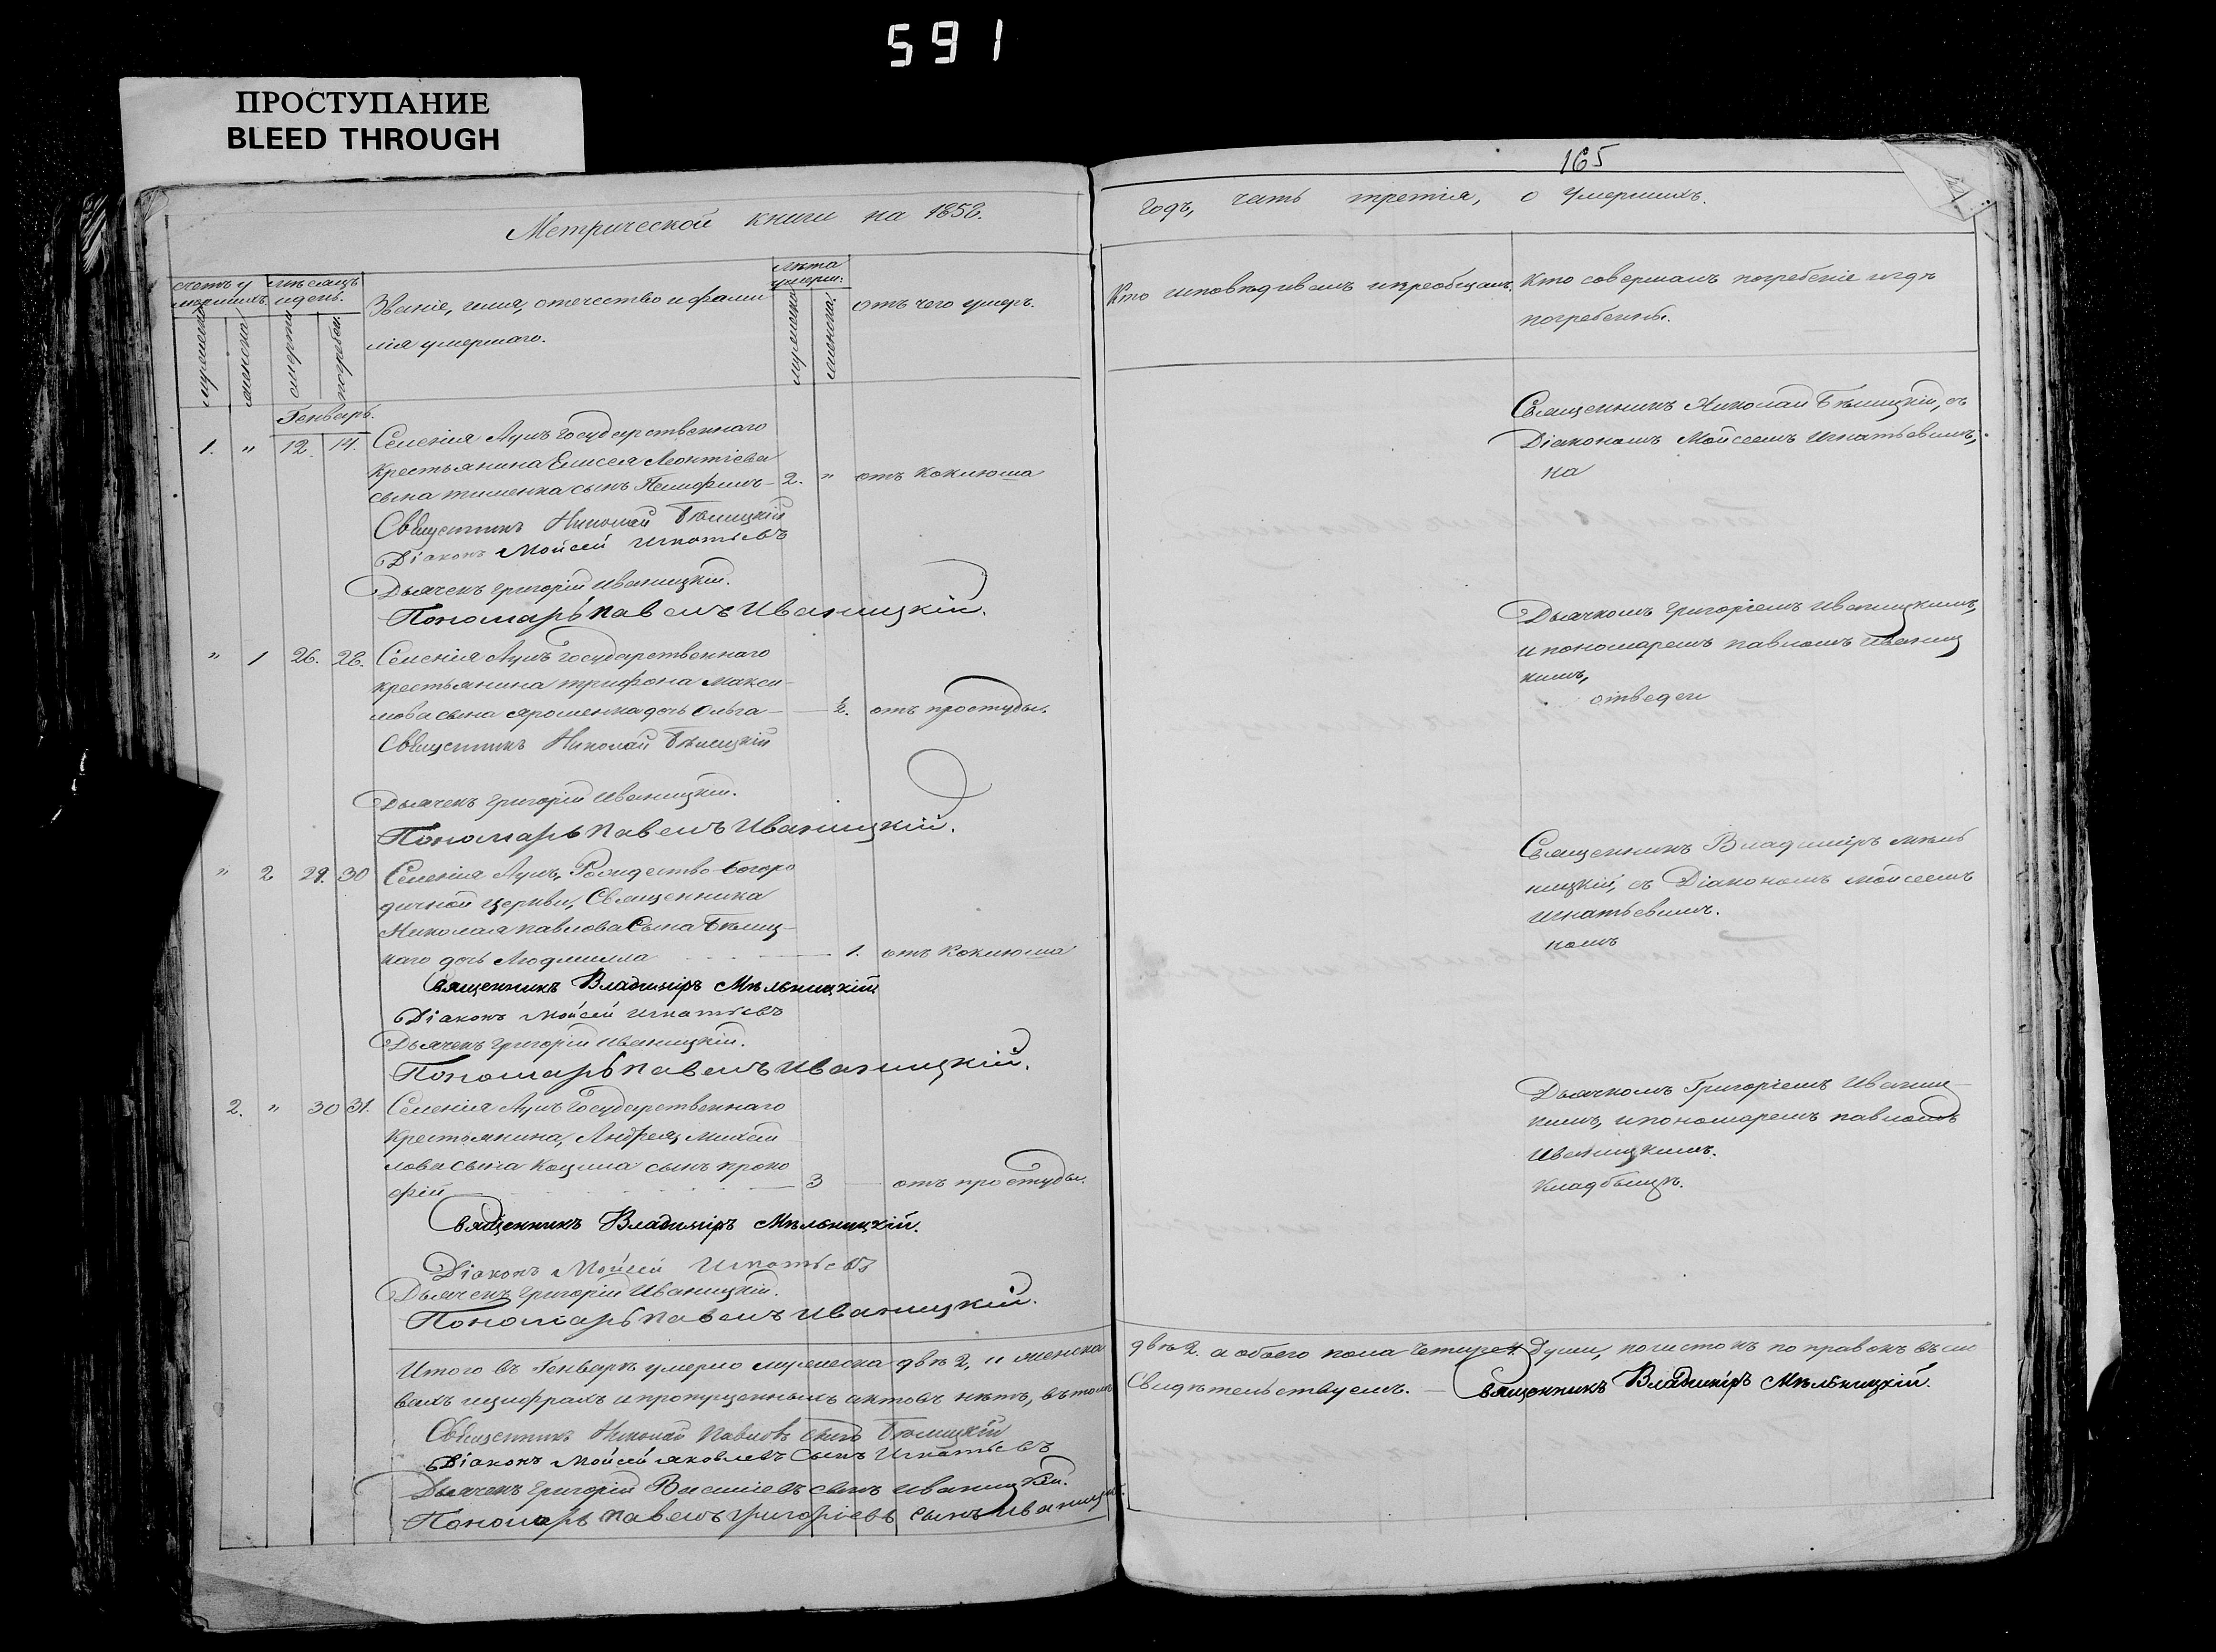 591
ПРОСТУПАНИЕ
BLEED THROUGH
165
Метрической книги на 1858.
Годъ, часть третія, о умершихъ.
Счетъ умершихъ
мѣсяцъ и день.
Званіе, имя, отечество и фами
лія умершаго.
лѣта умерш:
отъ чего умеръ.
мужеска
женска
смерти
погребен.
мужеска
женска
Кто исповѣдывалъ и пріобщалъ.
Кто совершалъ погребеніе и гдѣ
погребенны.
Генварь.
1. " 12. 14. Селенія Аулъ Государственнаго
Крестьянина Елисея Леонтіева
сына тименка сынъ Памфилъ 2. " отъ Коклюша
Священникъ Николай Бѣлицкій
Діаконъ Мойсей Игнатьевъ
Дьячекъ Григорій Иваницкій.
Пономарь Павелъ Иваницкій.
Священникъ Николай Бѣлицкій, съ
Діакономъ Мойсеемъ Игнатьевымъ,
на
" 1 26. 28. Селенія Аулъ Государственнаго
крестьянина трифона Макси
мова сына ярошенка дочь Ольга ½. отъ простуды.
Священникъ Николай Бѣлицкій
Дьячекъ Григорій Иваницкій.
Пономарь Павелъ Иваницкій.
Дьячкомъ Григоріемъ Иваницкимъ,
и пономаремъ павломъ Иваниц
кимъ,
отведен
" 2 29. 30 Селенія Аулъ, Рождество-Богоро
дичной церкви, Священника
Николая павлова Сына Бѣлиц
каго дочь Людмилла 1. отъ Коклюша
Священникъ Владиміръ Мѣльницкій
Діаконъ Мойсей Игнатьевъ
Дьячекъ Григорій Иваницкій.
Пономарь Павелъ Иваницкій.
Священникъ Владиміръ мѣль
ницкій, съ Діакономъ мойсеемъ
игнатьевымъ.
номъ
2. " 30 31. Селенія Аулъ Государственнаго
Крестьянина, Андрея Михай
лова сына Коцила сынъ проко
фій 3 отъ простуды.
Священникъ Владиміръ Мѣльницкій.
Діаконъ Мойсей Игнатьевъ
Дьячекъ Григорій Иваницкій.
Пономарь Павелъ Иваницкій.
Дьячкомъ Григоріемъ Иваниц
кимъ, и пономаремъ павломъ
Иваницкимъ.
Кладбищѣ.
Итого въ Генварѣ умерло мужеска двѣ 2, и женска двѣ 2. а обоего пола четыре 4. души, почистокъ поправокъ въ сло
вахъ и цифрахъ и пропущенныхъ актовъ нѣтъ, въ томъ Свидѣтельствуемъ. — Священникъ Владиміръ Мѣльницкій.
Священникъ Николай Павловъ сынъ Бѣлицкій
Діаконъ Мойсей яковлевъ Сынъ Игнатьевъ
Дьячекъ Григорій Василіевъ сынъ Иваницкій.
Пономарь Павелъ Григоріевъ Сынъ Иваницкій.